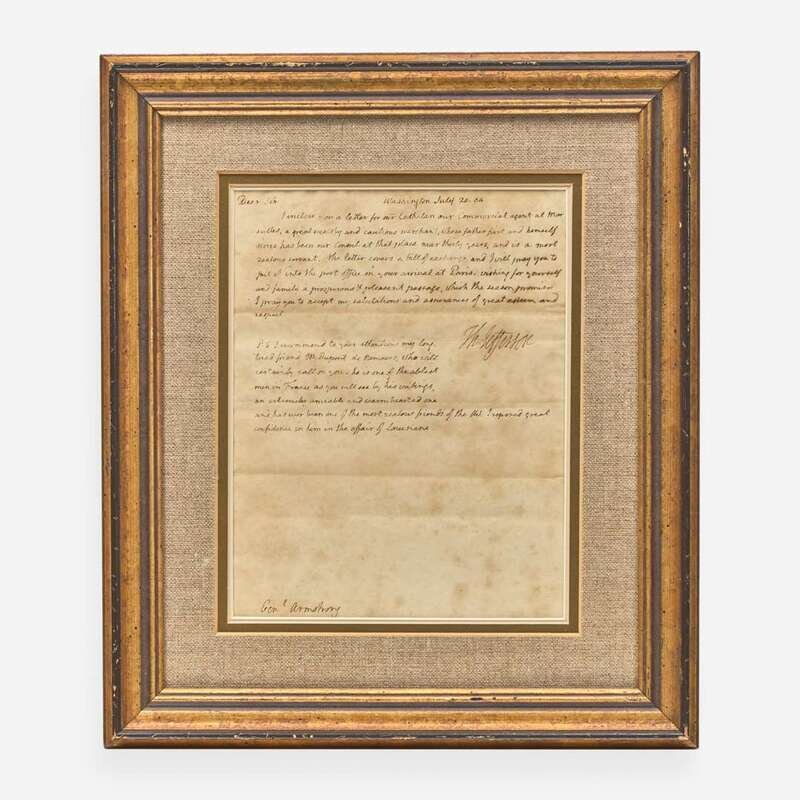 Dear Sir Washington July 20. 04
I inclose you a letter for mr Cathalan our Commercial agent at Mar
seilles, a great wealthy and cautious merchant, whose father first and himself
since has been our Consul at that place near thirty years, and is a most
zealous servant. the letter covers a bill of exchange, and I will pray you to
put it into the post office on your arrival at Paris. wishing for yourself
and family a prosperous & pleasant passage, which the season promises
I pray you to accept my salutations and assurances of great esteem and
respect
Th: Jefferson
P.S. I recommend to your attention my long
tried friend Mr Dupont de Nemours, who will
certainly call on you. he is one of the ablest
men in France as you will see by his writings,
an extremely amiable and warm hearted one
and has ever been one of the most zealous friends of the US. I reposed great
confidence in him in the affair of Louisiana
Genl. Armstrong